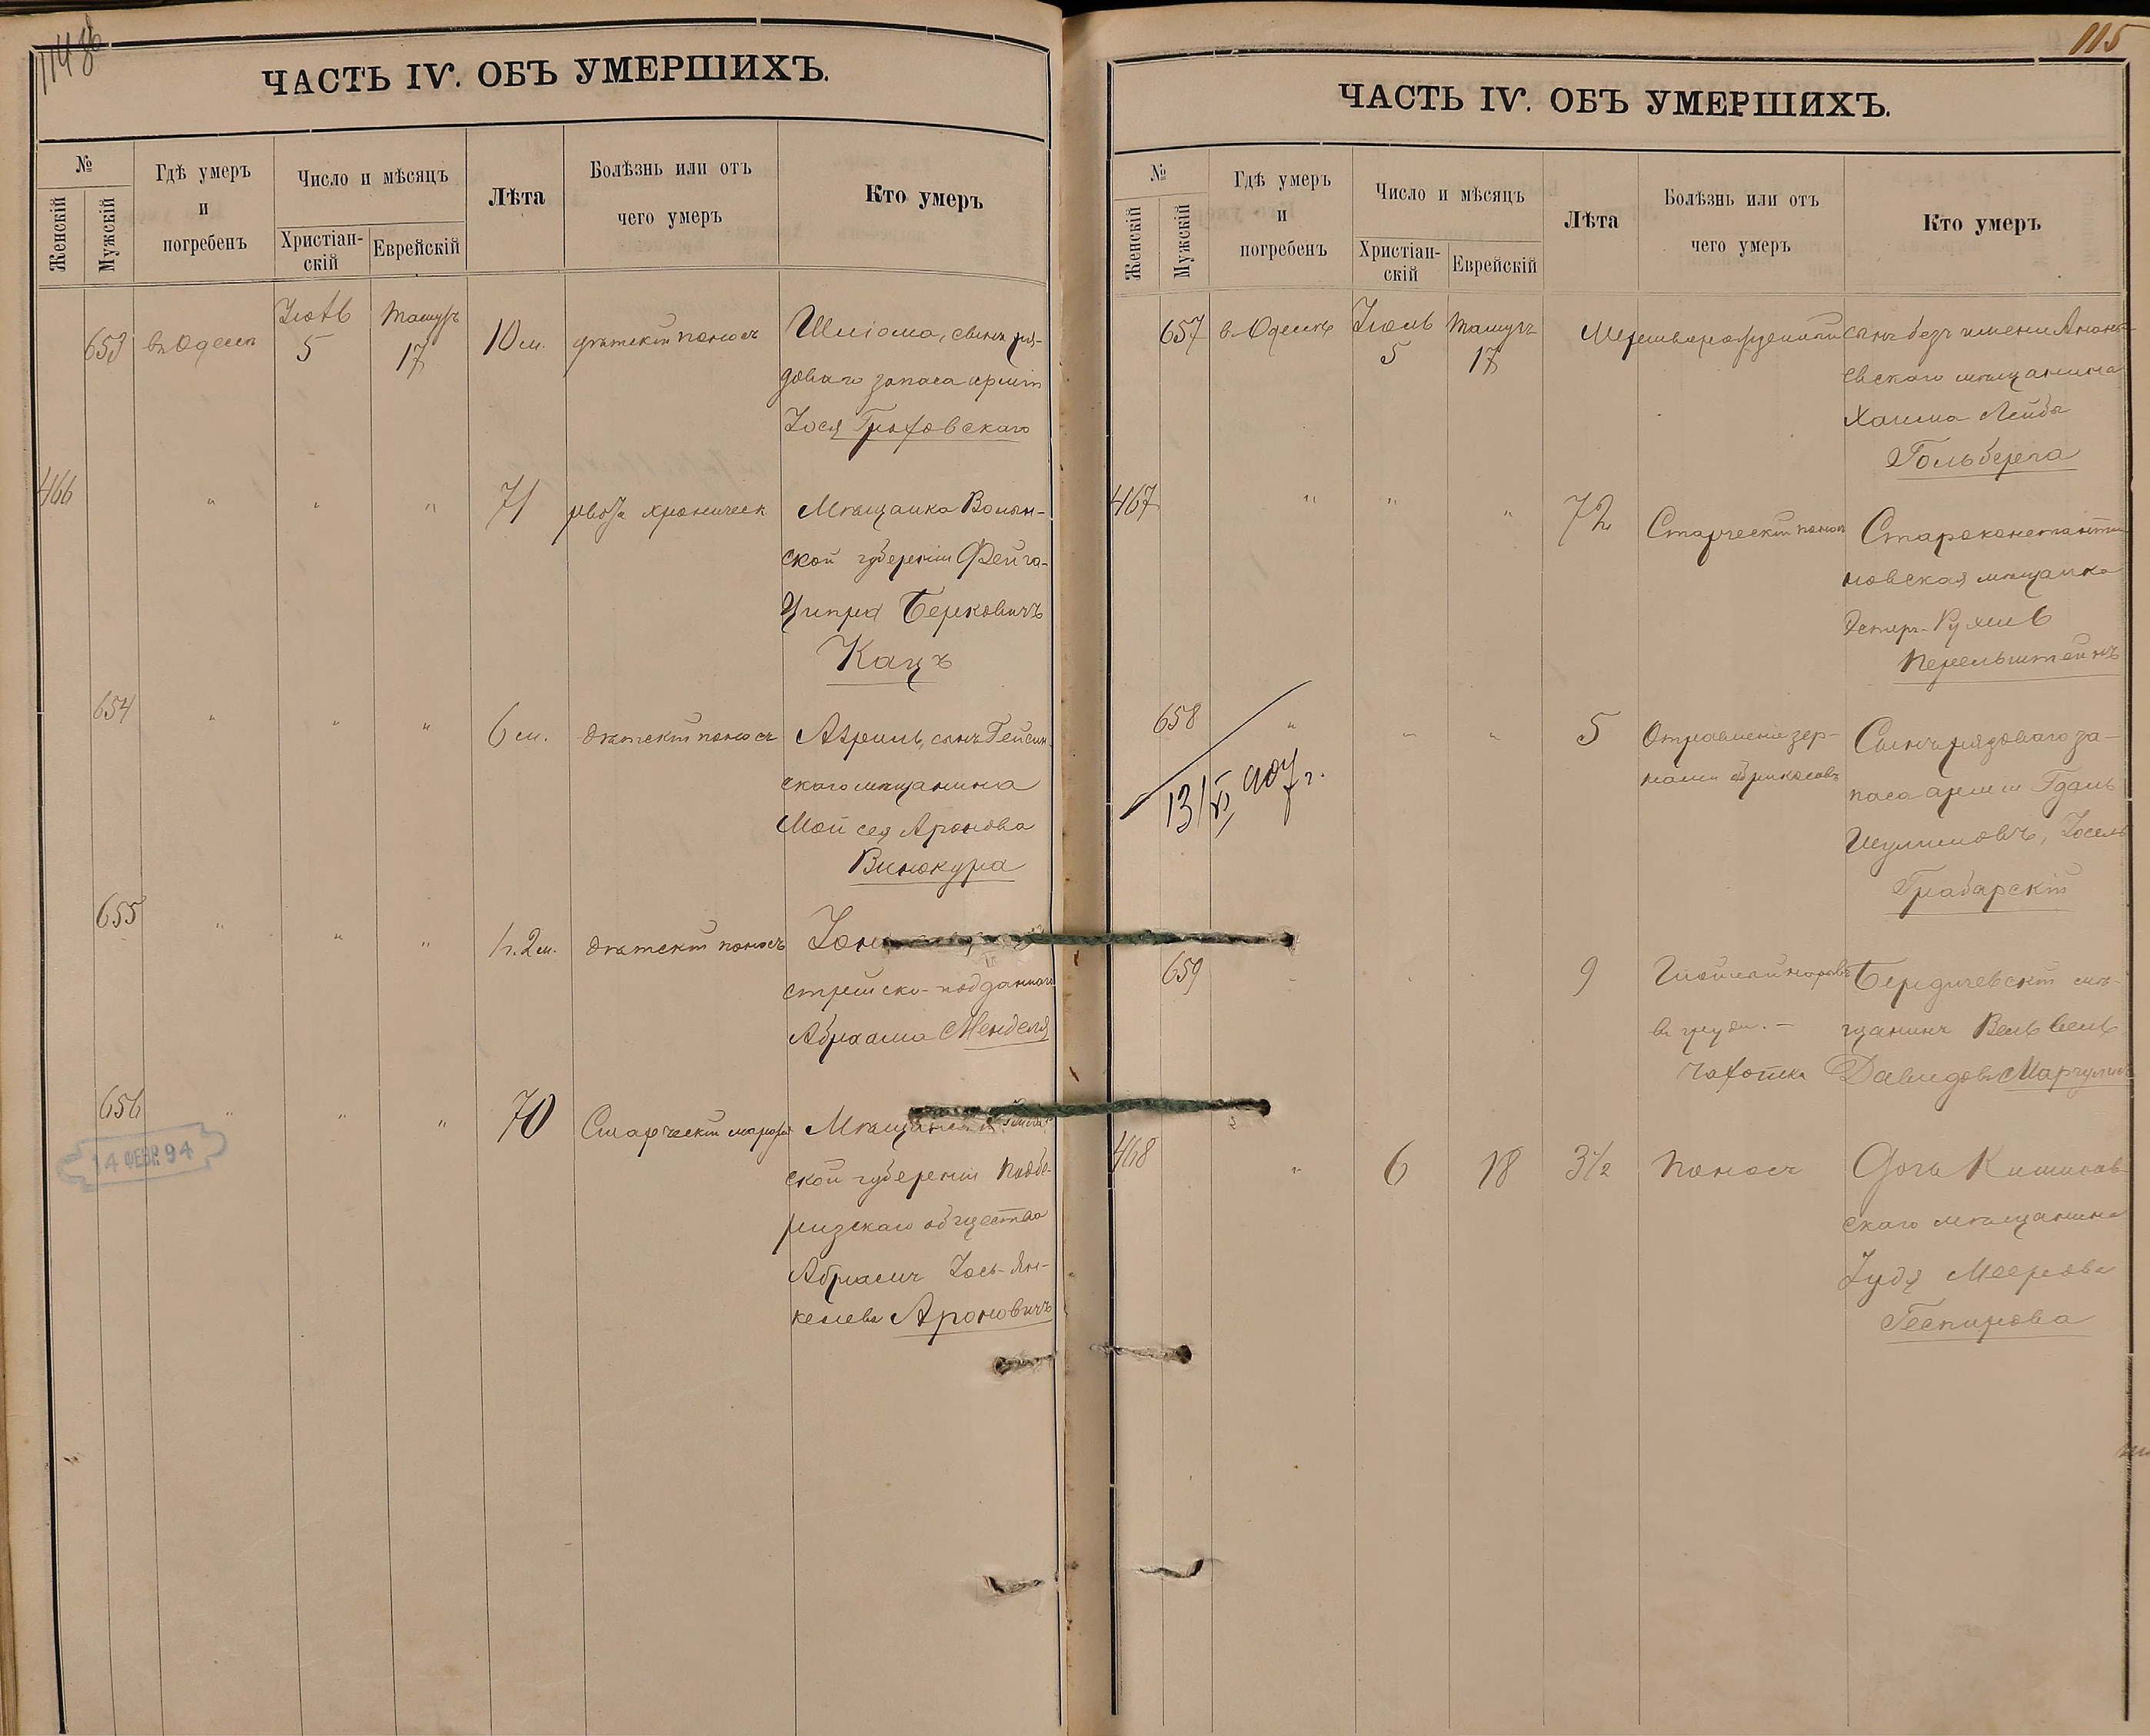 114 об
ЧАСТЬ IV. ОБЪ УМЕРШИХЪ.
№
Женскій
Мужскій
Гдѣ умеръ
и
погребенъ
Число и мѣсяцъ
Христіан-
скій
Еврейскій
Лѣта
Болѣзнь или отъ
чего умеръ
Кто умеръ
653 въ Одессѣ Іюль Тамузъ 10 м. дѣтскій поносъ Шліома, сынъ ря-
5 17 доваго запаса арміи
Іося Гроховскаго
466 " " " 71 хроническ Мѣщанка Волын-
ской губерніи Фейга-
Ципра Берковичъ
Кацъ
654 " " " 6 м. дѣтскій поносъ Азриль, сынъ Гейсин-
скаго мѣщанина
Мойсея Аронова
Винокура
655 " " " дѣтскій поносъ
стрійско-подданнаго
Абрама Менделя
656 " " " 70 Старческій маразм
14 ФЕВР. 94
ской губерніи
общества
Абрамъ Іось-Ян-
келевъ Ароновичъ
115
ЧАСТЬ IV. ОБЪ УМЕРШИХЪ.
№
Женскій
Мужскій
Гдѣ умеръ
и
погребенъ
Число и мѣсяцъ
Христіан-
скій
Еврейскій
Лѣта
Болѣзнь или отъ
чего умеръ
Кто умеръ
657 в Одессѣ Іюль Тамузъ Мертворожденный сынъ безъ имени Анань-
5 17 евскаго мѣщанина
Хаима Лейбы
Гольберга
467 " " " 72 Старческій понос Староконстанти
новская мѣщанка
Эстеръ-Рухль
Перельштейнъ
658 " " " 5 Отравленіе зер- Сынъ рядоваго за-
нами абрикосовъ паса арміи Гдаль
13/VI 907 г.
Шулимовъ, Іосель
Грабарскій
659 9 Бердичевскій мѣ-
в груди.- щанинъ Вельвель
Чахотка Давидовъ Маргулис
468 " 6 18 3½ Поносъ Дочь Кишинев-
скаго мѣщанина
Іуды Меерова
Геспирова